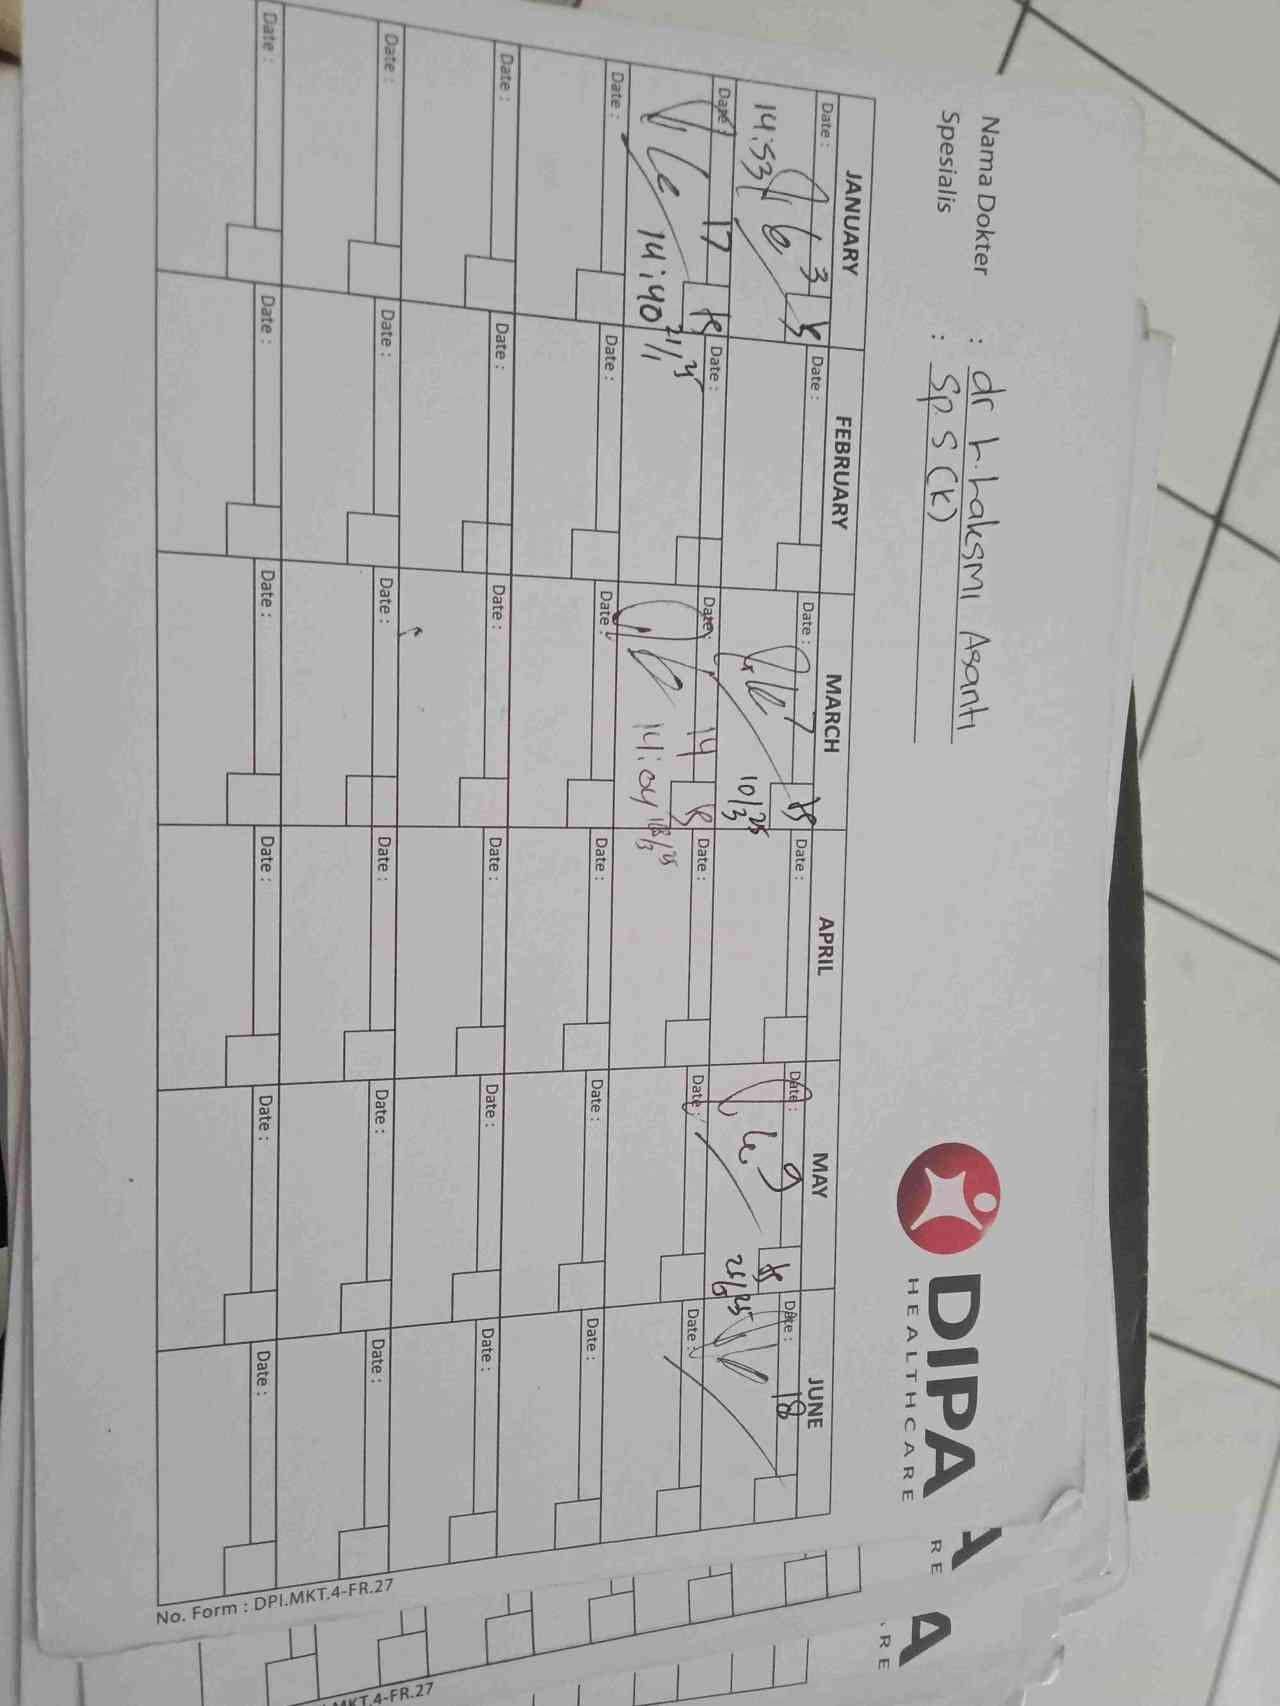 Nama Dokter : dr h. Laksmi Asanti
Spesialis : Sp. S (K)
DIPA
HEALTHCARE
JANUARY FEBRUARY MARCH APRIL MAY JUNE
Date : 3 Date : Date : 7 Date : Date : 9 Date : 18
14:53 10/3 25
Date : 17 Date : Date : 14 Date : Date : Date :
14:40 21/1 25 14:04 18/3 25
Date : Date : Date : Date : Date : Date :
Date : Date : Date : Date : Date : Date :
Date : Date : Date : Date : Date : Date :
Date : Date : Date : Date : Date : Date :
No. Form : DPI.MKT.4-FR.27
A
RE
A
RE
MKT.4-FR.27